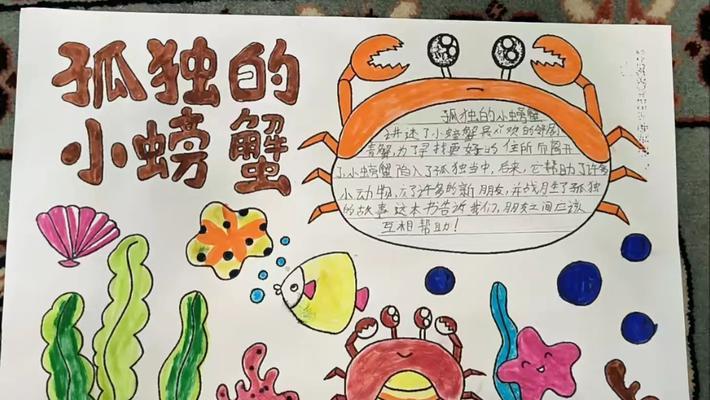 孤独的
小螃蟹
孤独的小螃蟹
讲述了小螃蟹喜欢的邻居
青蟹,为了寻找更好的住所而离开
了,小螃蟹陷入了孤独当中,后来,它帮助了许多
小动物,了许多的新朋友,并战胜了孤独
的故事.这本书告诉我们,朋友之间应该
互相帮助!